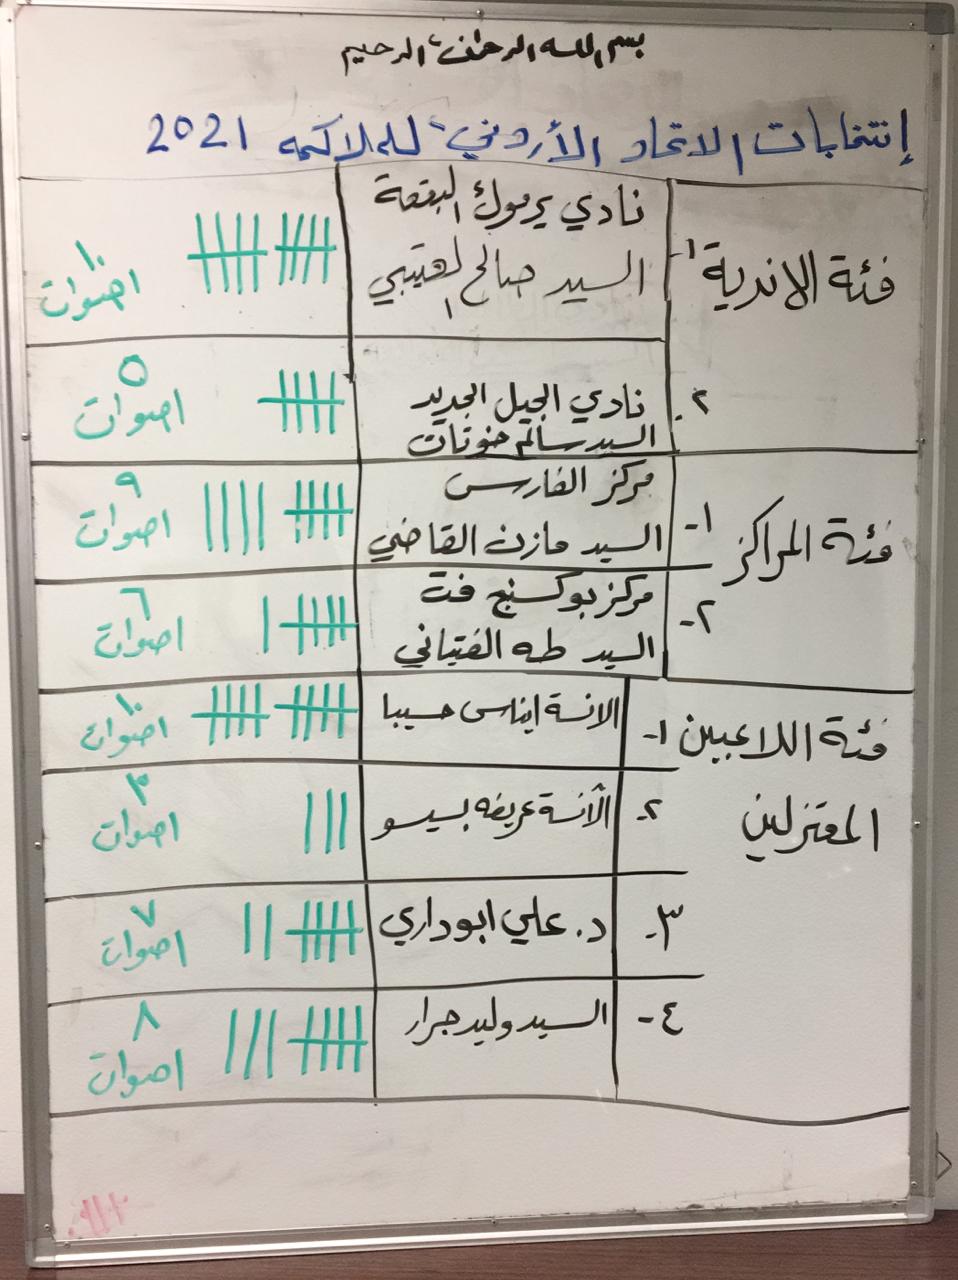 بسم الله الرحمن الرحيم
إنتخابات الاتحاد الأردني للملاكمه 2021
فئة الاندية
١-
نادي يرموك البقعة
السيد صالح الهتيبي
١٠
اصوات
٢-
نادي الجيل الجديد
السيد سالم خوتات
٥
اصوات
فئة المراكز
١-
مركز الفارس
السيد مازن القاضي
٩
اصوات
٢-
مركز بوكسنج فت
السيد طه الفتياني
٦
اصوات
فئة اللاعبين
المعتزلين
١-
الانسة ايناس حسيبا
١٠
اصوات
٢-
الآنسة عريفه بسيسو
٣
اصوات
٣-
د. علي ابوداري
٧
اصوات
٤-
السيد وليد جرار
٨
اصوات